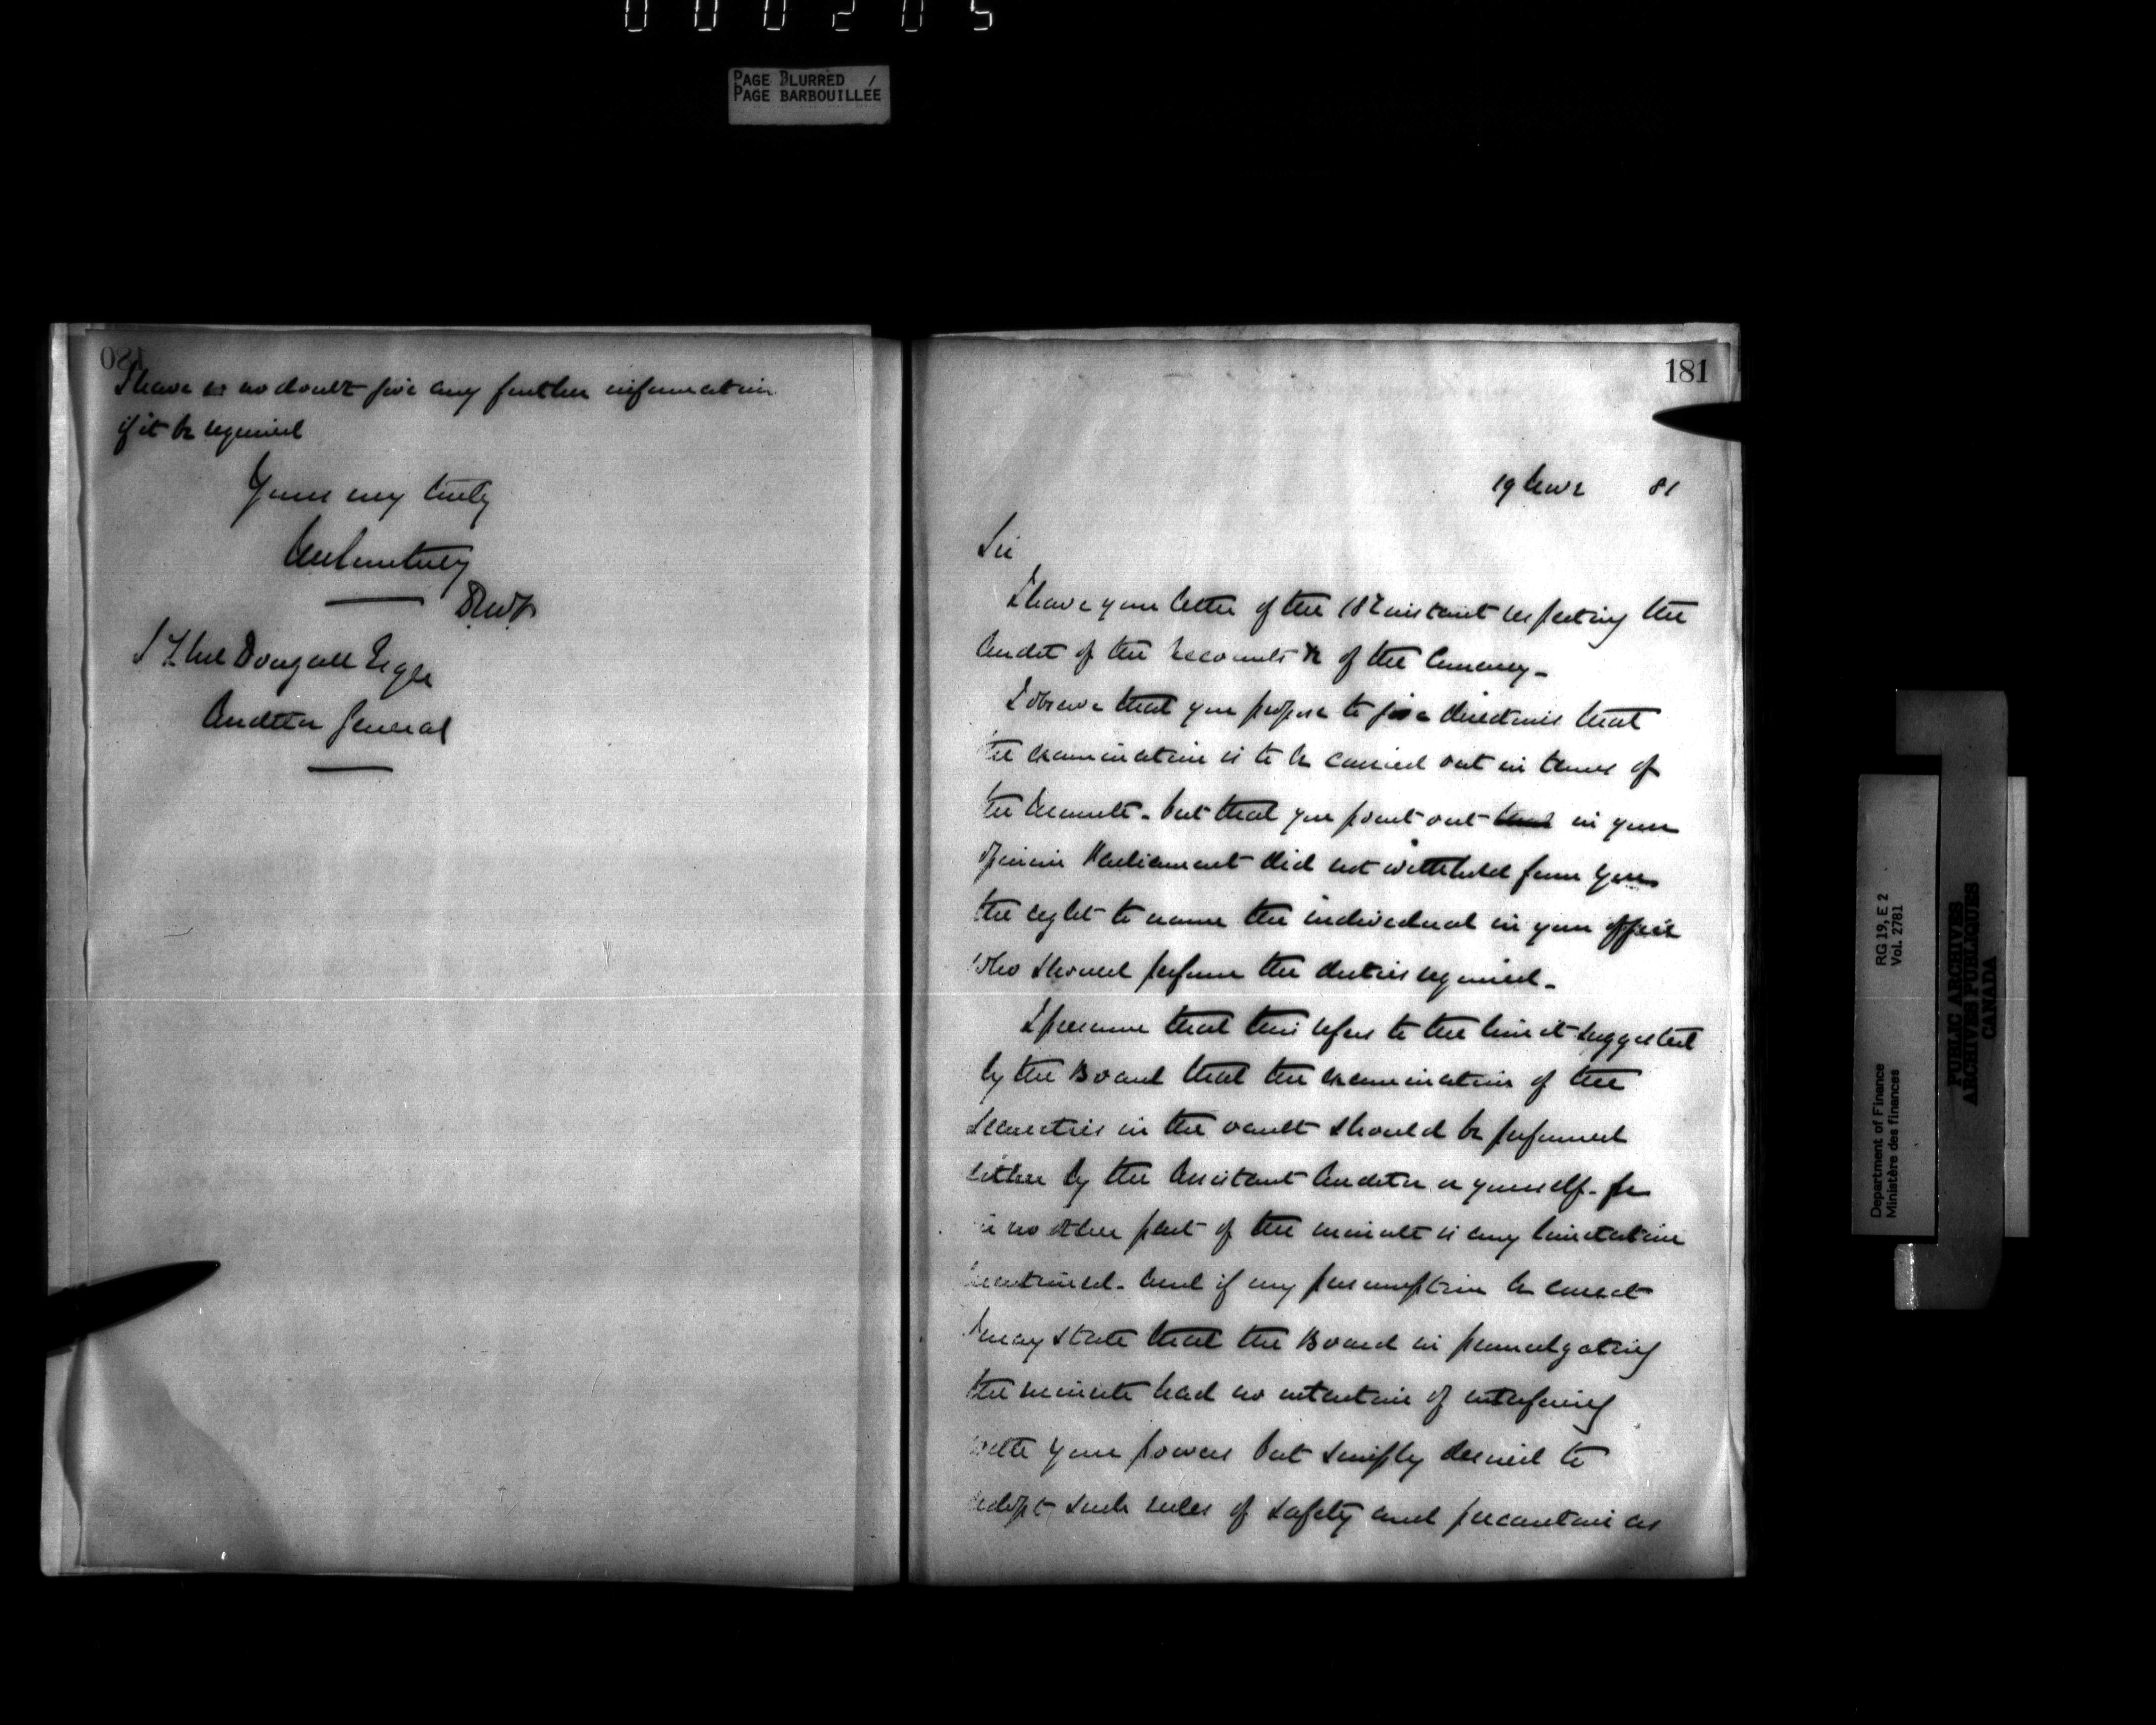 000205
PAGE BLURRED
PAGE BARBOUILLÉE
180
I have no doubt give any further information
if it be required
Yours very truly
DMF
J L McDougall Esqre
Auditor General
181
19 81
Sir
I have your letter of the 18 instant respecting the
Audit of the Accounts &c of the Currency -
I observe that you propose to give directions that
the examination is to be carried out in terms of
the Minute - but that you point out that in your
opinion Parliament did not withhold from you
the right to name the individual in your office
who should perform the duties required -
I presume that this refers to the limit suggested
by the Board that the examination of the
Securities in the vault should be performed
either by the Assistant Auditor or yourself - for
in no other part of the minute is any limitation
mentioned - and if my presumption be correct
I may state that the Board in promulgating
the minute had no intention of interfering
with your powers but simply desired to
adopt such rules of safety and precaution as
Department of Finance
Ministère des finances
RG 19, E 2
Vol. 2781
PUBLIC ARCHIVES
ARCHIVES PUBLIQUES
CANADA